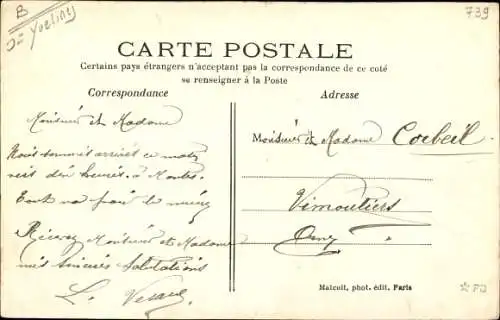 B
J= Yvelines
739
CARTE POSTALE
Certains pays étrangers n'acceptant pas la correspondance de ce coté
se renseigner à la Poste
Correspondance
Adresse
Monsieur et Madame
Nous sommes arrivés ce matin
dix heures à Mantes.
Tout va pour le mieux
Recevez Monsieur et Madame
mes sincères salutations
L.
Monsieur et Madame Corbeil
Vimoutiers
Orne
Malcuit, phot. édit. Paris